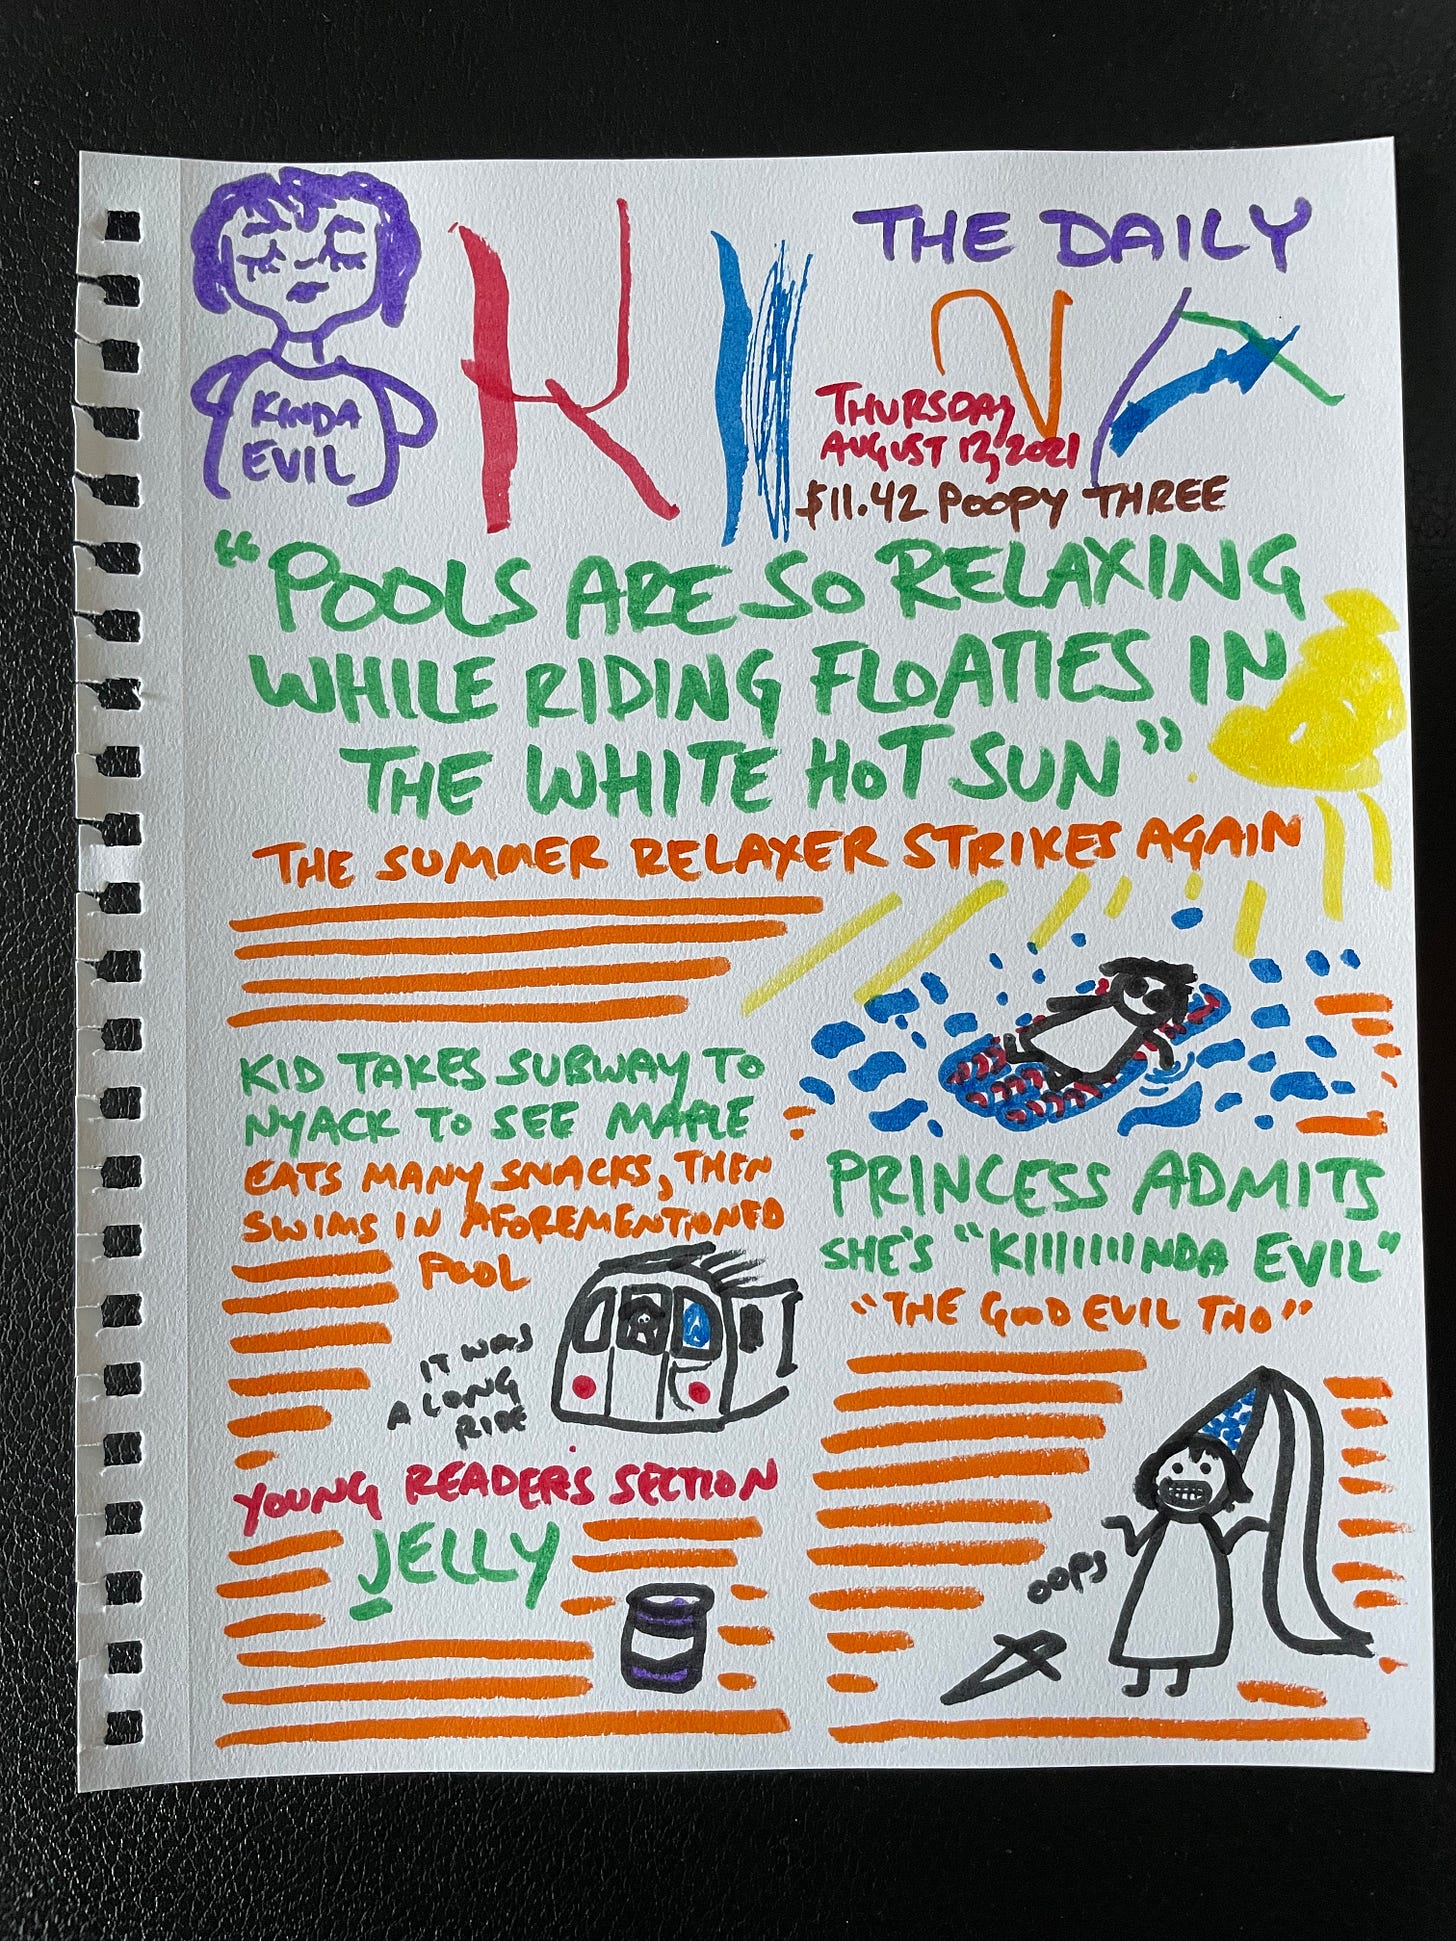 THE DAILY
KINA
KINDA
EVIL
THURSDAY
AUGUST 12, 2021
$11.42 POOPY THREE
"POOLS ARE SO RELAXING
WHILE RIDING FLOATIES IN
THE WHITE HOT SUN"
THE SUMMER RELAXER STRIKES AGAIN
KID TAKES SUBWAY TO
NYACK TO SEE MAPLE
EATS MANY SNACKS, THEN
SWIMS IN AFOREMENTIONED
POOL
IT WAS
A LONG
RIDE
PRINCESS ADMITS
SHE'S "KIIIIIIIINDA EVIL"
"THE GOOD EVIL THO"
OOPS
YOUNG READER'S SECTION
JELLY